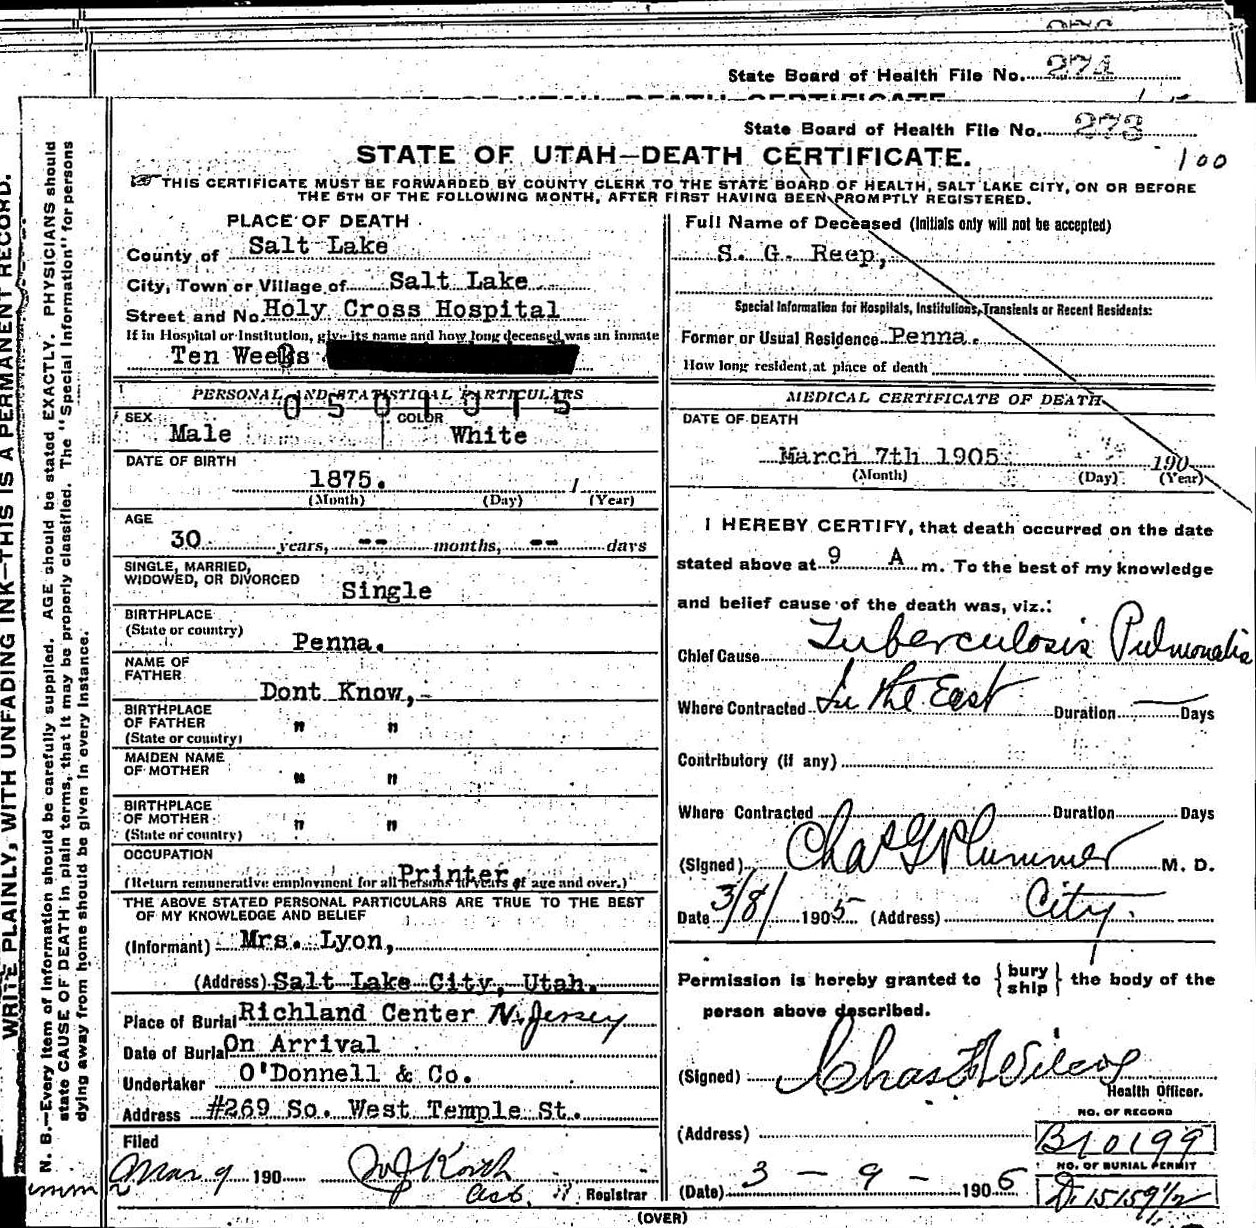 State Board of Health File No. 274
State Board of Health File No. 273
STATE OF UTAH—DEATH CERTIFICATE.
100
THIS CERTIFICATE MUST BE FORWARDED BY COUNTY CLERK TO THE STATE BOARD OF HEALTH, SALT LAKE CITY, ON OR BEFORE
THE 5TH OF THE FOLLOWING MONTH, AFTER FIRST HAVING BEEN PROMPTLY REGISTERED.
WRITE PLAINLY, WITH UNFADING INK—THIS IS A PERMANENT RECORD.
N. B.—Every item of information should be carefully supplied. AGE should be stated EXACTLY. PHYSICIANS should
state CAUSE OF DEATH in plain terms, that it may be properly classified. The "Special Information" for persons
dying away from home should be given in every instance.
PLACE OF DEATH
County of Salt Lake
City, Town or Village of Salt Lake
Street and No. Holy Cross Hospital
If in Hospital or Institution, give its name and how long deceased was an inmate
Ten Weeks
PERSONAL AND STATISTICAL PARTICULARS
0501315
SEX Male COLOR White
DATE OF BIRTH
1875.
(Month) (Day) (Year)
AGE
30 years, -- months, -- days
SINGLE, MARRIED,
WIDOWED, OR DIVORCED Single
BIRTHPLACE
(State or country) Penna.
NAME OF
FATHER Dont Know,-
BIRTHPLACE
OF FATHER " "
(State or country)
MAIDEN NAME
OF MOTHER " "
BIRTHPLACE
OF MOTHER " "
(State or country)
OCCUPATION Printer
(Return remunerative employment for all persons 10 years of age and over.)
THE ABOVE STATED PERSONAL PARTICULARS ARE TRUE TO THE BEST
OF MY KNOWLEDGE AND BELIEF
(Informant) Mrs. Lyon,
(Address) Salt Lake City, Utah.
Place of Burial Richland Center N. Jersey
Date of Burial On Arrival
Undertaker O'Donnell & Co.
Address #269 So. West Temple St.
Filed
Mar 9 190
Registrar
Full Name of Deceased (Initials only will not be accepted)
S. G. Reep,
Special Information for Hospitals, Institutions, Transients or Recent Residents:
Former or Usual Residence Penna.
How long resident at place of death
MEDICAL CERTIFICATE OF DEATH
DATE OF DEATH
March 7th 1905 190
(Month) (Day) (Year)
I HEREBY CERTIFY, that death occurred on the date
stated above at 9 A m. To the best of my knowledge
and belief cause of the death was, viz.:
Chief Cause Tuberculosis Pulmonalis
Where Contracted In the East Duration — Days
Contributory (if any)
Where Contracted Duration Days
(Signed) Chas G Plummer M. D.
Date 3/8/ 1905 (Address) City.
Permission is hereby granted to {bury ship} the body of the
person above described.
(Signed) Chas F Wilcox
Health Officer.
NO. OF RECORD
(Address) B10199
NO. OF BURIAL PERMIT
(Date) 3 – 9 – 1906 D. 15159 1/2
(OVER)